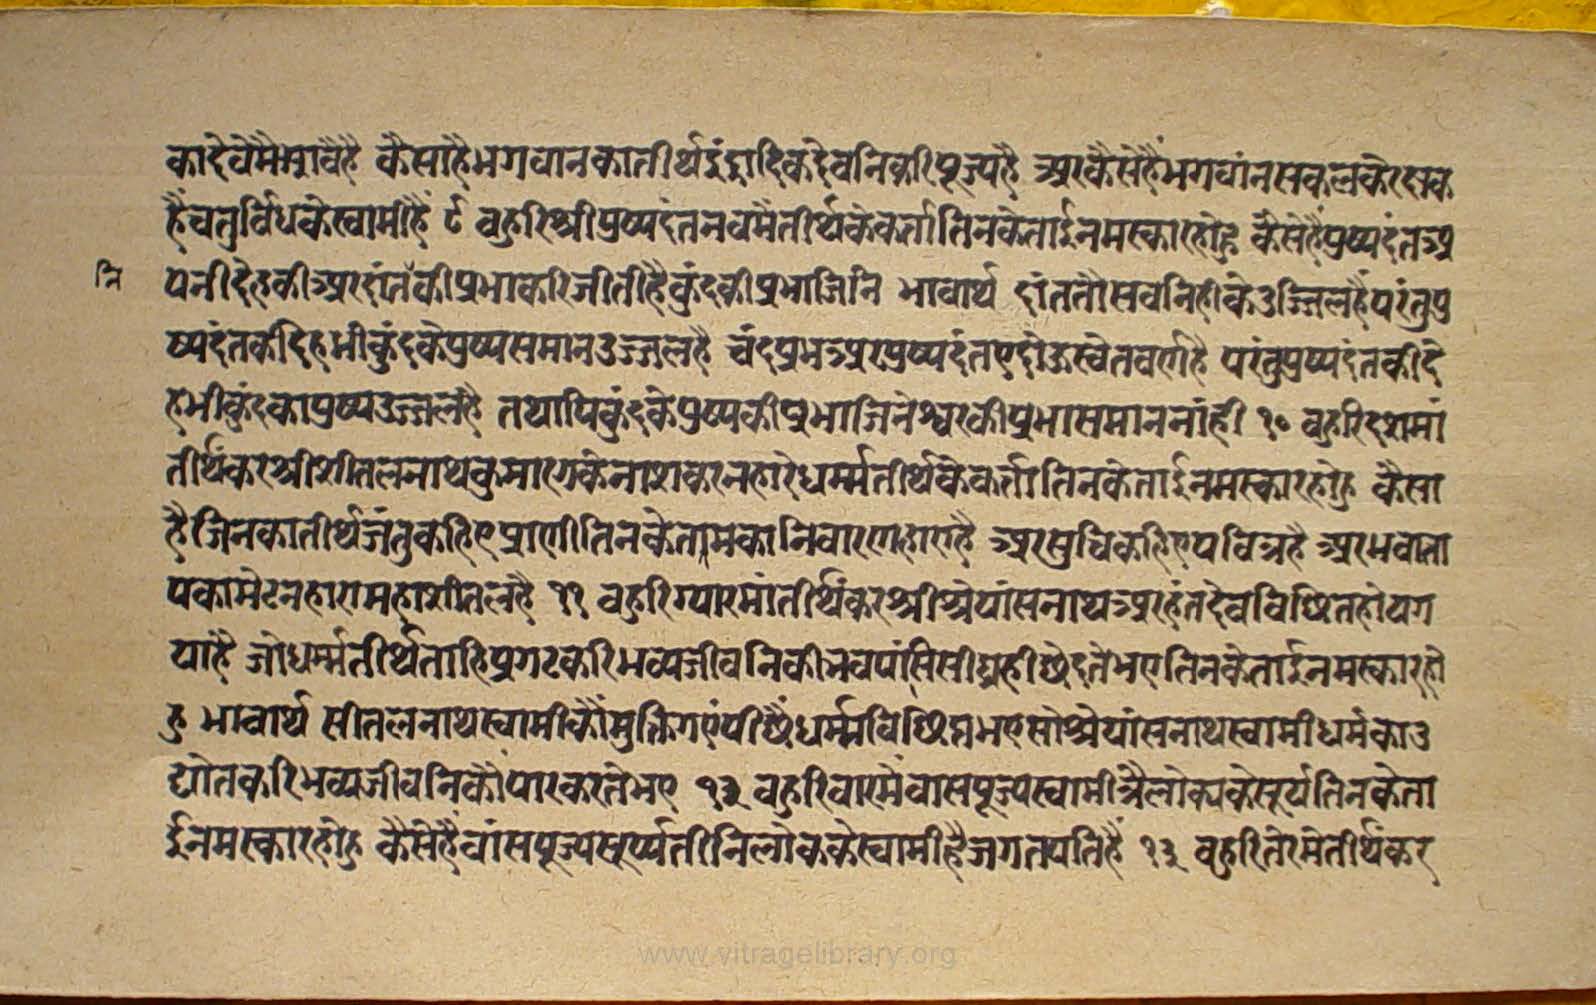 कादेवेमैमावैहै कैसाहैभगवानकातीर्थइंद्रादिकदेवनिकरिपूज्यहै अरकैसेहैंभगवांनसकलकेरक्षक
हैंचतुर्विधकेस्वामीहैं ९ बहुरिश्रीपुष्पदंतनवमैतीर्थकेकर्तातिनकेतांईनमस्कारहोहु कैसेहैंपुष्पदंतअ
पनीदेहकीअरदांतकीप्रभाकरिजीतीहैकुंदकीप्रभाजिनि भावार्थ दांततौसबनिहीकेउज्जिलहैंपरंतुपु
नि
ष्पदंतकीदेहभीकुंदकेपुष्पसमानउज्जलहै चंदप्रभअरपुष्पदंतएदोऊस्वेतवर्णहै परंतुपुष्पदंतकीदे
हभीकुंदकापुष्पउज्जलहै तथापिकुंदकेपुष्पकीप्रभाजिनेश्वरकीप्रभासमाननांही १० बहुरिदशमां
तीर्थंकरश्रीशीतलनाथकुमार्गकेनाशकरनहारेधर्म्मतीर्थकेकर्तातिनकेतांईनमस्कारहोहु कैसा
हैजिनकातीर्थजंतुकहिएप्राणीतिनकेतामकानिवारणहाराहै अरसुचिकहिएपवित्रहै अरभवाता
पकामेटनहारामहाशीतलहै ११ बहुरिग्यारमांतीर्थंकरश्रीश्रेयांसनाथअरहंतदेवविछितहोयग
याहै जोधर्म्मतीर्थताहिप्रगटकरिभव्यजीवनिकीभवपांसिसीघ्रहीछेदतेभएतिनकेतांईनमस्कारहो
हु भावार्थ सीतलनाथस्वामीकौंमुक्तिगएंपीछैंधर्म्मविछितभएसोश्रेयांसनाथस्वामीधर्मकाउ
द्योतकरिभव्यजीवनिकौंपारकरतेभए १२ बहुरिबारमैंवासपूज्यस्वामीत्रैलोक्यकेसूर्यतिनकेतां
ईनमस्कारहोहु कैसेहैंवांसपूज्यसूर्य्यतीनिलोककेस्वामीहैजगतपतिहैं १३ बहुरितेरमेतीर्थंकर
www.vitragelibrary.org